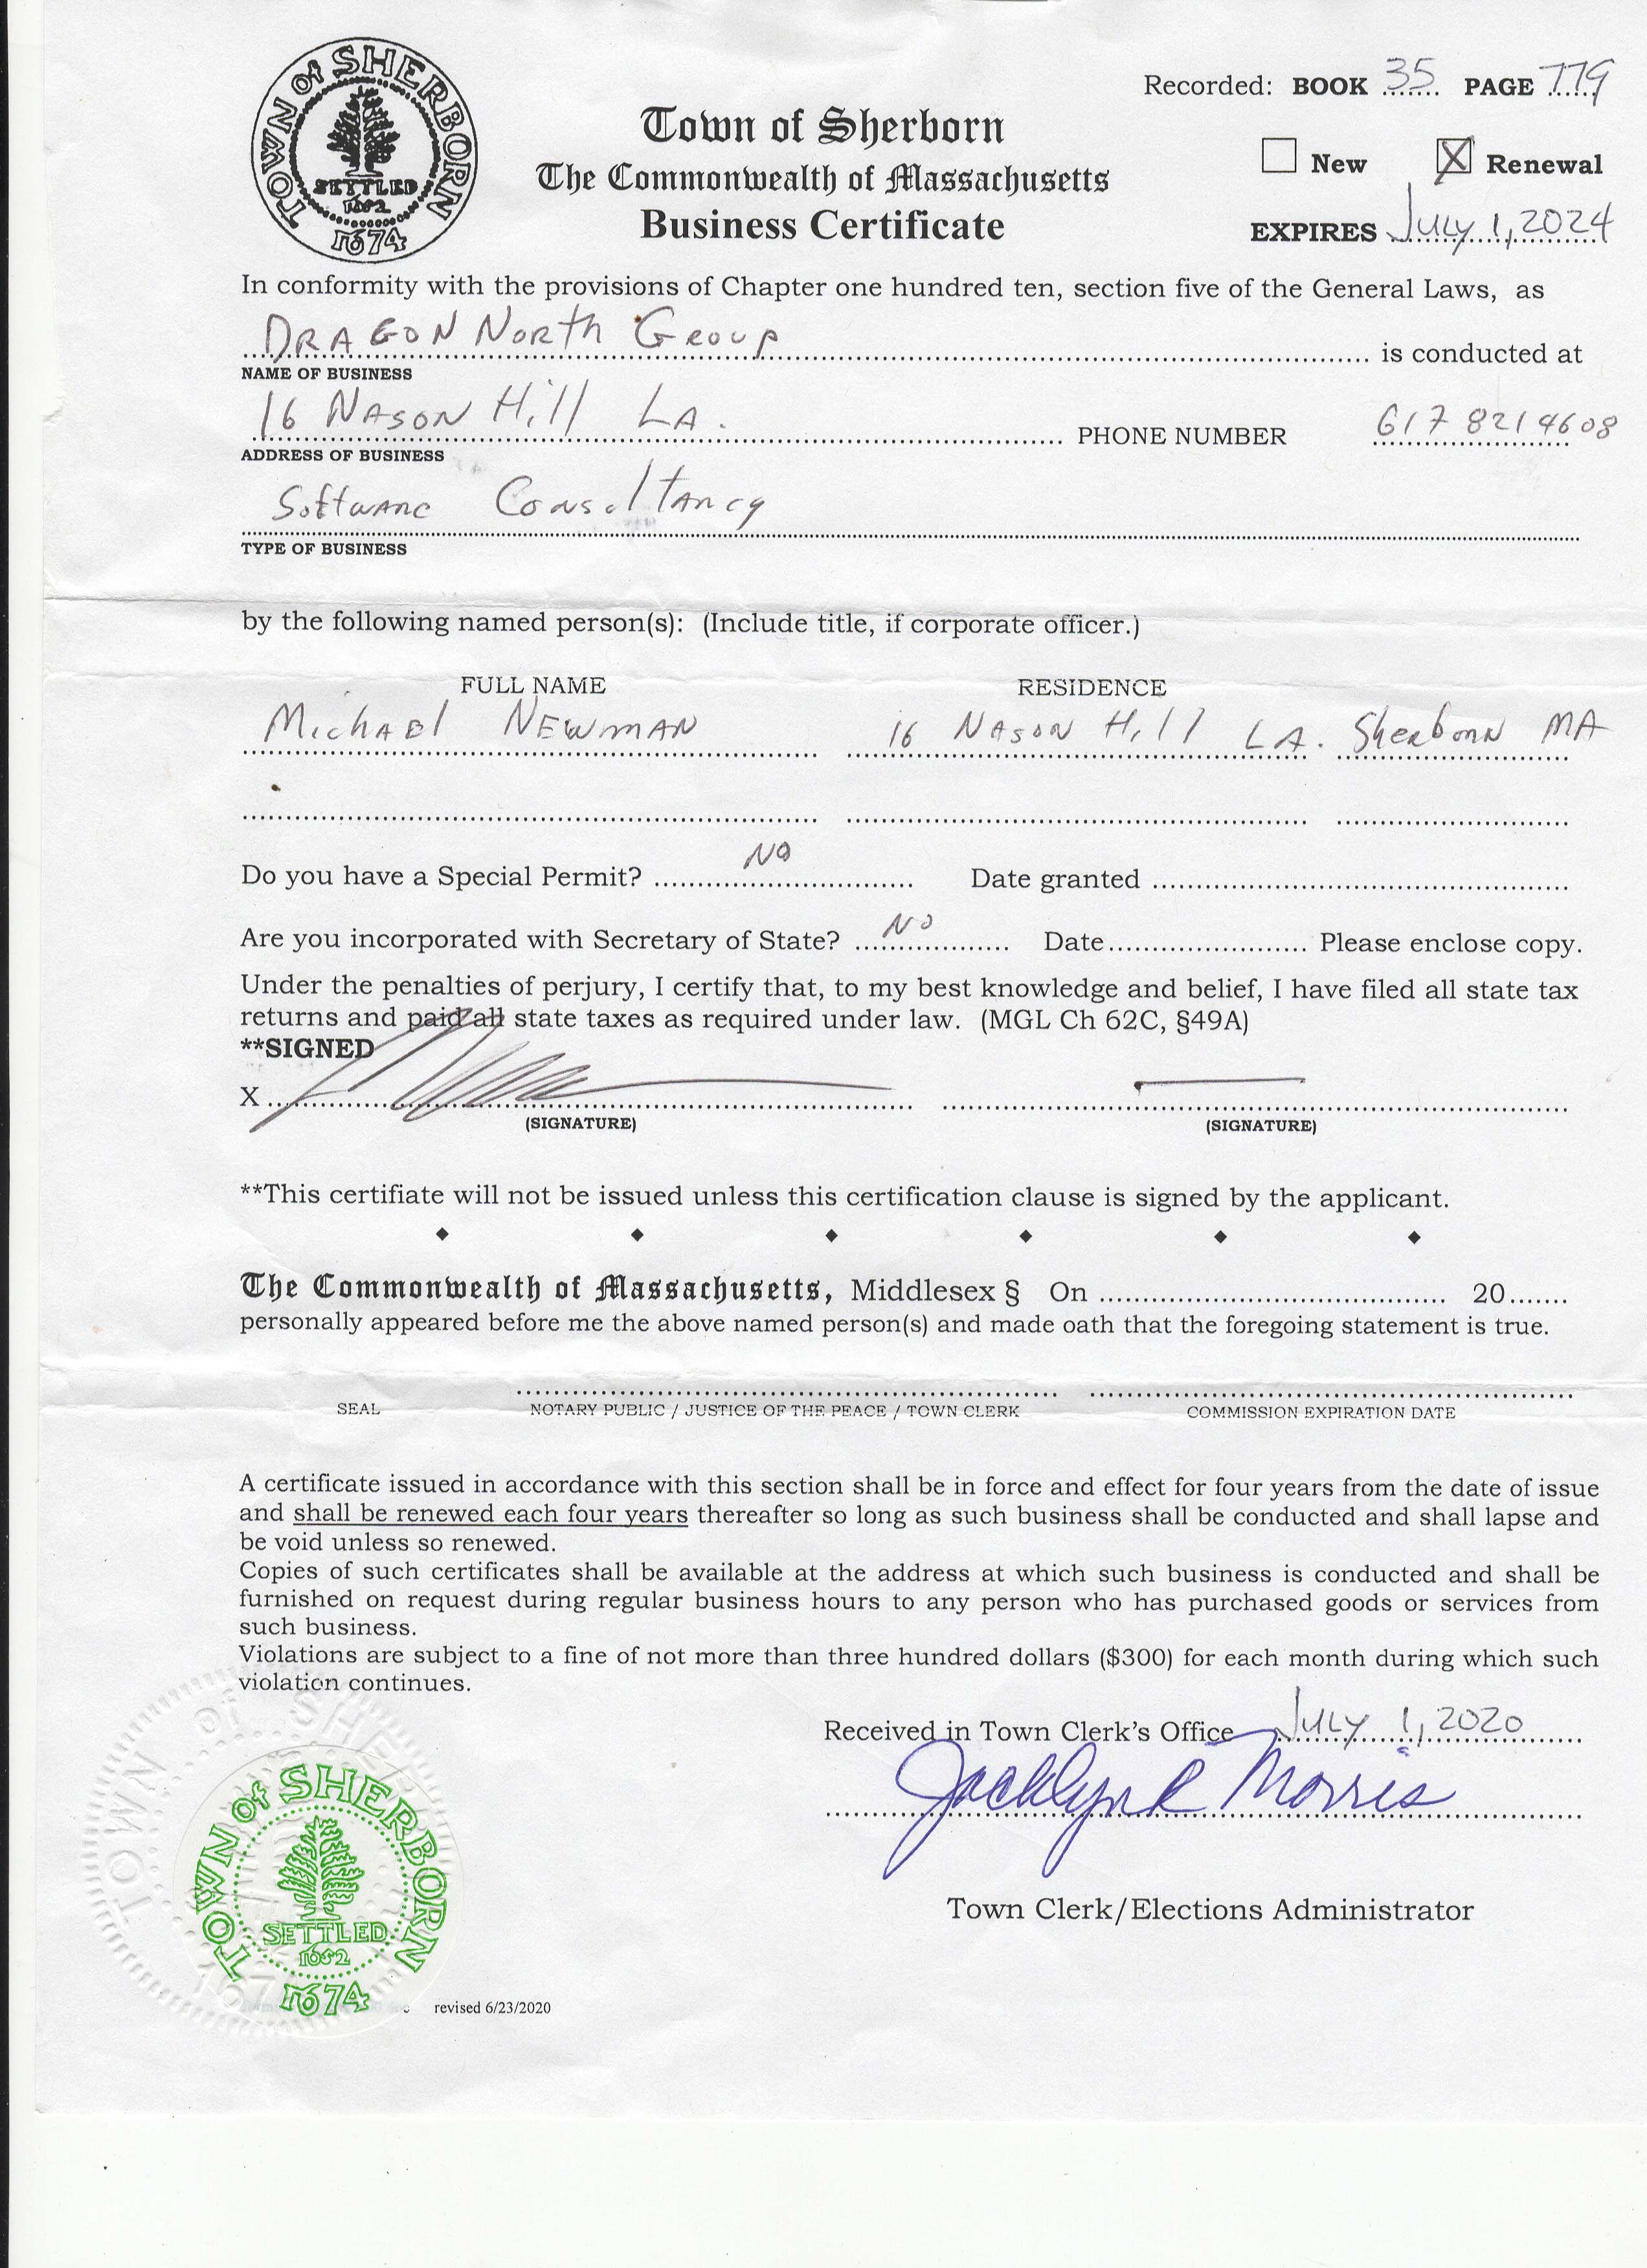 TOWN of SHERBORN
SETTLED
1652
1674
Recorded: BOOK 35 PAGE 779
Town of Sherborn
The Commonwealth of Massachusetts
Business Certificate
New X Renewal
EXPIRES July 1, 2024
In conformity with the provisions of Chapter one hundred ten, section five of the General Laws, as
DRAGON North Group is conducted at
NAME OF BUSINESS
16 NASON Hill LA. PHONE NUMBER 617 8214608
ADDRESS OF BUSINESS
Software Consultancy
TYPE OF BUSINESS
by the following named person(s): (Include title, if corporate officer.)
FULL NAME RESIDENCE
Michael NEWMAN 16 NASON Hill LA. Sherborn MA
Do you have a Special Permit? NO Date granted
Are you incorporated with Secretary of State? No Date Please enclose copy.
Under the penalties of perjury, I certify that, to my best knowledge and belief, I have filed all state tax
returns and paid all state taxes as required under law. (MGL Ch 62C, §49A)
**SIGNED
X
(SIGNATURE) (SIGNATURE)
**This certifiate will not be issued unless this certification clause is signed by the applicant.
The Commonwealth of Massachusetts, Middlesex § On 20
personally appeared before me the above named person(s) and made oath that the foregoing statement is true.
SEAL NOTARY PUBLIC / JUSTICE OF THE PEACE / TOWN CLERK COMMISSION EXPIRATION DATE
A certificate issued in accordance with this section shall be in force and effect for four years from the date of issue
and shall be renewed each four years thereafter so long as such business shall be conducted and shall lapse and
be void unless so renewed.
Copies of such certificates shall be available at the address at which such business is conducted and shall be
furnished on request during regular business hours to any person who has purchased goods or services from
such business.
Violations are subject to a fine of not more than three hundred dollars ($300) for each month during which such
violation continues.
Received in Town Clerk's Office July 1, 2020
Jacklyn R Morris
Town Clerk/Elections Administrator
TOWN of SHERBORN
SETTLED
1652
1674
revised 6/23/2020